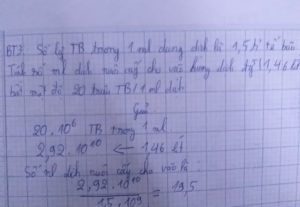 BT3. Số lg TB trong 1 ml dung dịch là 1,5 tỉ tế bào.
Tính số ml dịch nuôi cấy cho vào dung dịch 1,46 lít
mật độ 20 triệu TB/1 ml dịch
Giải
20.10⁶ TB trong 1 ml
2,92.10¹⁰ ← 1,46 lít
Số ml dịch nuôi cấy cho vào là:
2,92.10¹⁰ = 19,5
1,5.10⁹